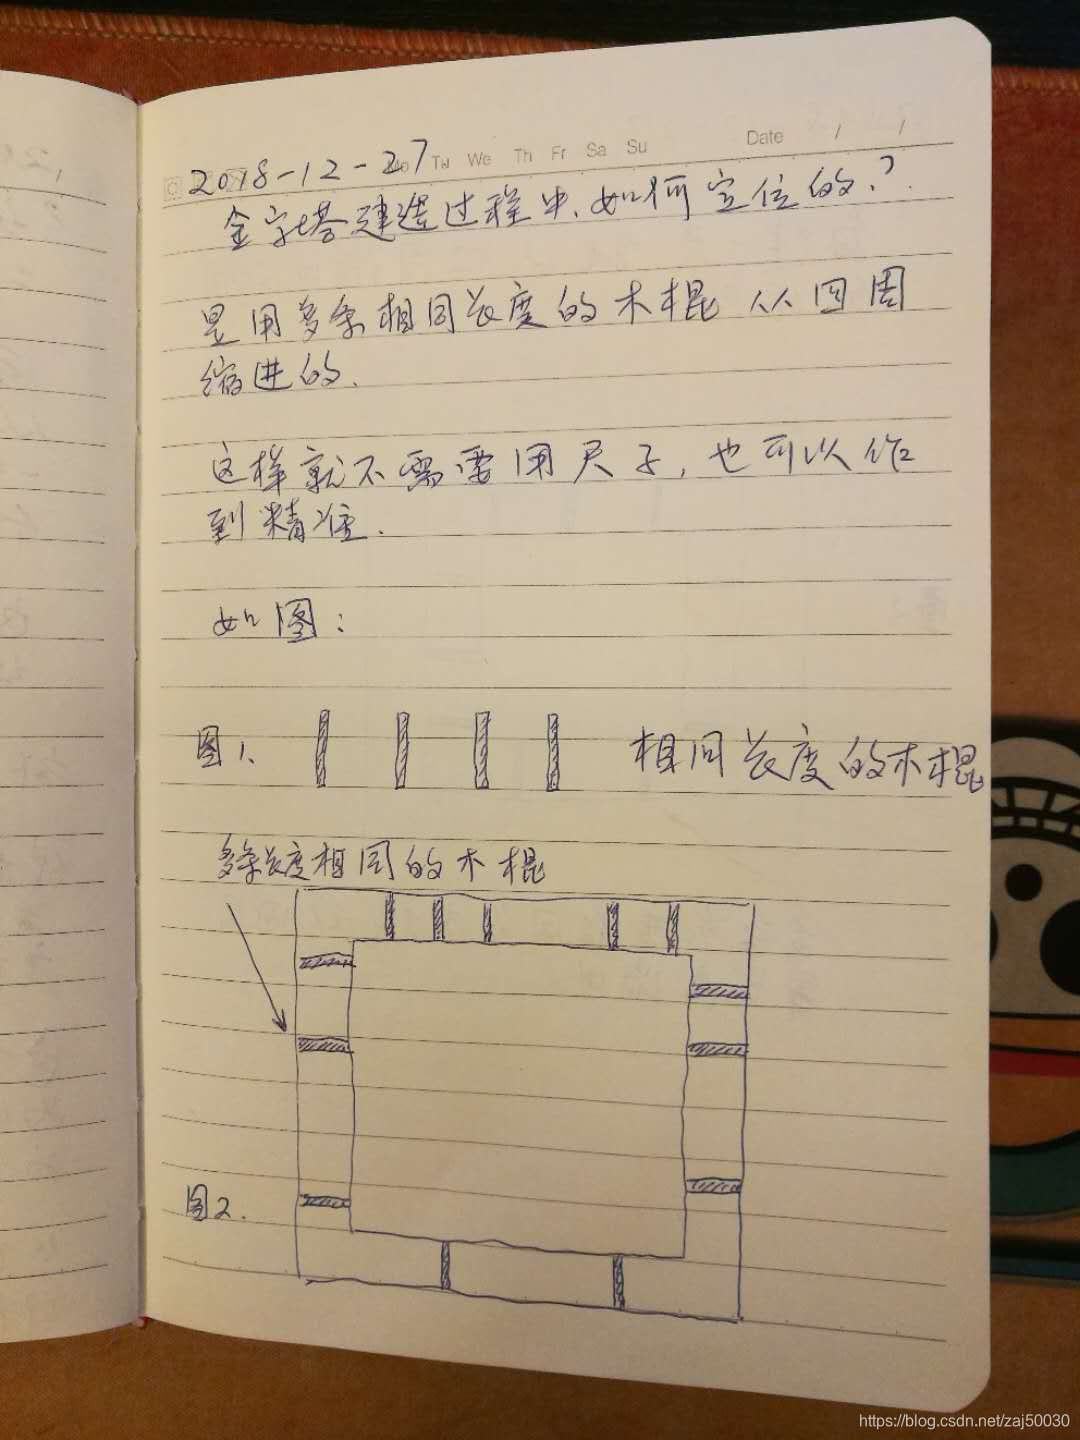 Mo Tu We Th Fr Sa Su Date / /
2018-12-27
金字塔建造过程中,如何定位的?
是用多条相同长度的木棍 从四周
缩进的.
这样就不需要用尺子,也可以作
到精准.
如图:
图1. 相同长度的木棍
多条长度相同的木棍
图2.
https://blog.csdn.net/zaj50030